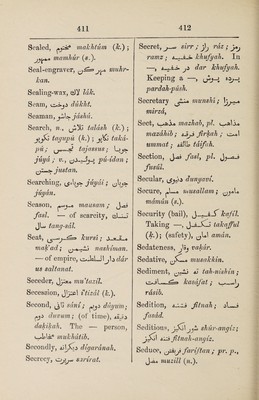 411
Sealed, مختوم makhtúm (k.);
ممهور mamhúr (s.).
Seal-engraver, مهرکن muhr-
kan.
Sealing-wax, لاک lák.
Seam, دوخت dúkht.
Seaman, جاشو jáshú.
Search, n., تلاش talásh (k.);
تگاپو
pú; تجسس tajassus; جویا
júyá; v., پویدن pú-ídan;
جستن justan.
Searching, جویای júyái; جویان
júyán.
Season, موسم mausam; فصل
fasl. — of scarcity, تنگ
سال tang-sál.
Seat, کرسی kursí; مقعد
mak'ad; نشیمن nashíman.
— of empire, دار السلطنت dár
us saltanat.
Seceder, معتزل mu'tazil.
Secession, اعتزال i'tizál (k.).
Second, ثانی sání; دویم dúyum;
دوم duvum; (of time), دقیقه
dakíkah. The — person,
مخاطب mukhátib.
Secondly, دیگرانه dígaránah.
Secrecy, سریرت
412
Secret, سر sirr; راز ráz; رمز
ramz; خفیه khufyah. In
—, در خفیه dar khufyah.
Keeping a —, پرده پوش
pardah-púsh.
Secretary منشی munshí; میرزا
mírzá.
Sect, مذهب mazhab, pl. مذاهب
mazáhib; فرقه firkah; امت
ummat; طائفه táïfch.
Section, فصل fasl, pl. فصول
fusúl.
Secular, دنیوی dunyaví.
Secure, مسلم musallam; مأمون
mámún (s.).
Security (bail), کفیل kafíl.
Taking —, تکفل takafful
(k.); (safety), امان amán.
Sedateness, وقار vakár.
Sedative, مسکن musakkin.
Sediment, ته نشین
کثافت kasáfat; راسب
rásib.
Sedition, فتنه fitnah; فساد
fasád.
Seditions, شور انگیز shúr-angíz;
فتنه انگیز fitnah-angíz.
Seduce, فریفتن faríftan; pr. p.,
مزل muzill (n.).